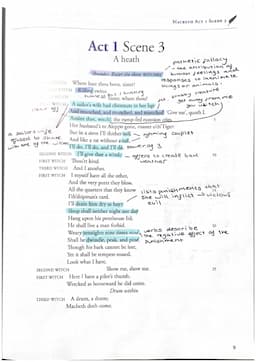 MACBETH ACT 1 SCENE 3
Act 1 Scene 3
A heath
Thunder. Enter the three WITCHES
pathetic fallacy
- the attribution of
human feelings and
responses to inanimate
things or animals.
Where hast thou been, sister?
Killing swine.
Sister, where thou?
A sailor's wife had chestnuts in her lap
And munched, and munched, and munched. 'Give me', quoth I.
'Aroint thee, witch', the rump-fed runnion cries.
Her husband's to Aleppo gone, master o'th'Tiger:
But in a sieve I'll thither sail,
And like a rat without a tail,
I'll do, I'll do, and I'll do.
rhyming couplets
SECOND WITCH I'll give thee a wind.
offers to create bad
weather
FIRST WITCH Thou'rt kind.
THIRD WITCH And I another.
FIRST WITCH I myself have all the other,
And the very ports they blow,
All the quarters that they know
I'th'shipman's card.
I'll drain him dry as hay:
Sleep shall neither night nor day
Hang upon his penthouse lid;
He shall live a man forbid.
Weary sennights nine times nine,
Shall he dwindle, peak, and pine.
Though his bark cannot be lost,
Yet it shall be tempest-tossed.
Look what I have.
lists punishments that
she will inflict - vicious
evil
verbs describe
the negative effect of the
punishment
SECOND WITCH Show me, show me.
FIRST WITCH Here I have a pilot's thumb,
Wrecked as homeward he did come.
Drum within
THIRD WITCH A drum, a drum;
Macbeth doth come.
9